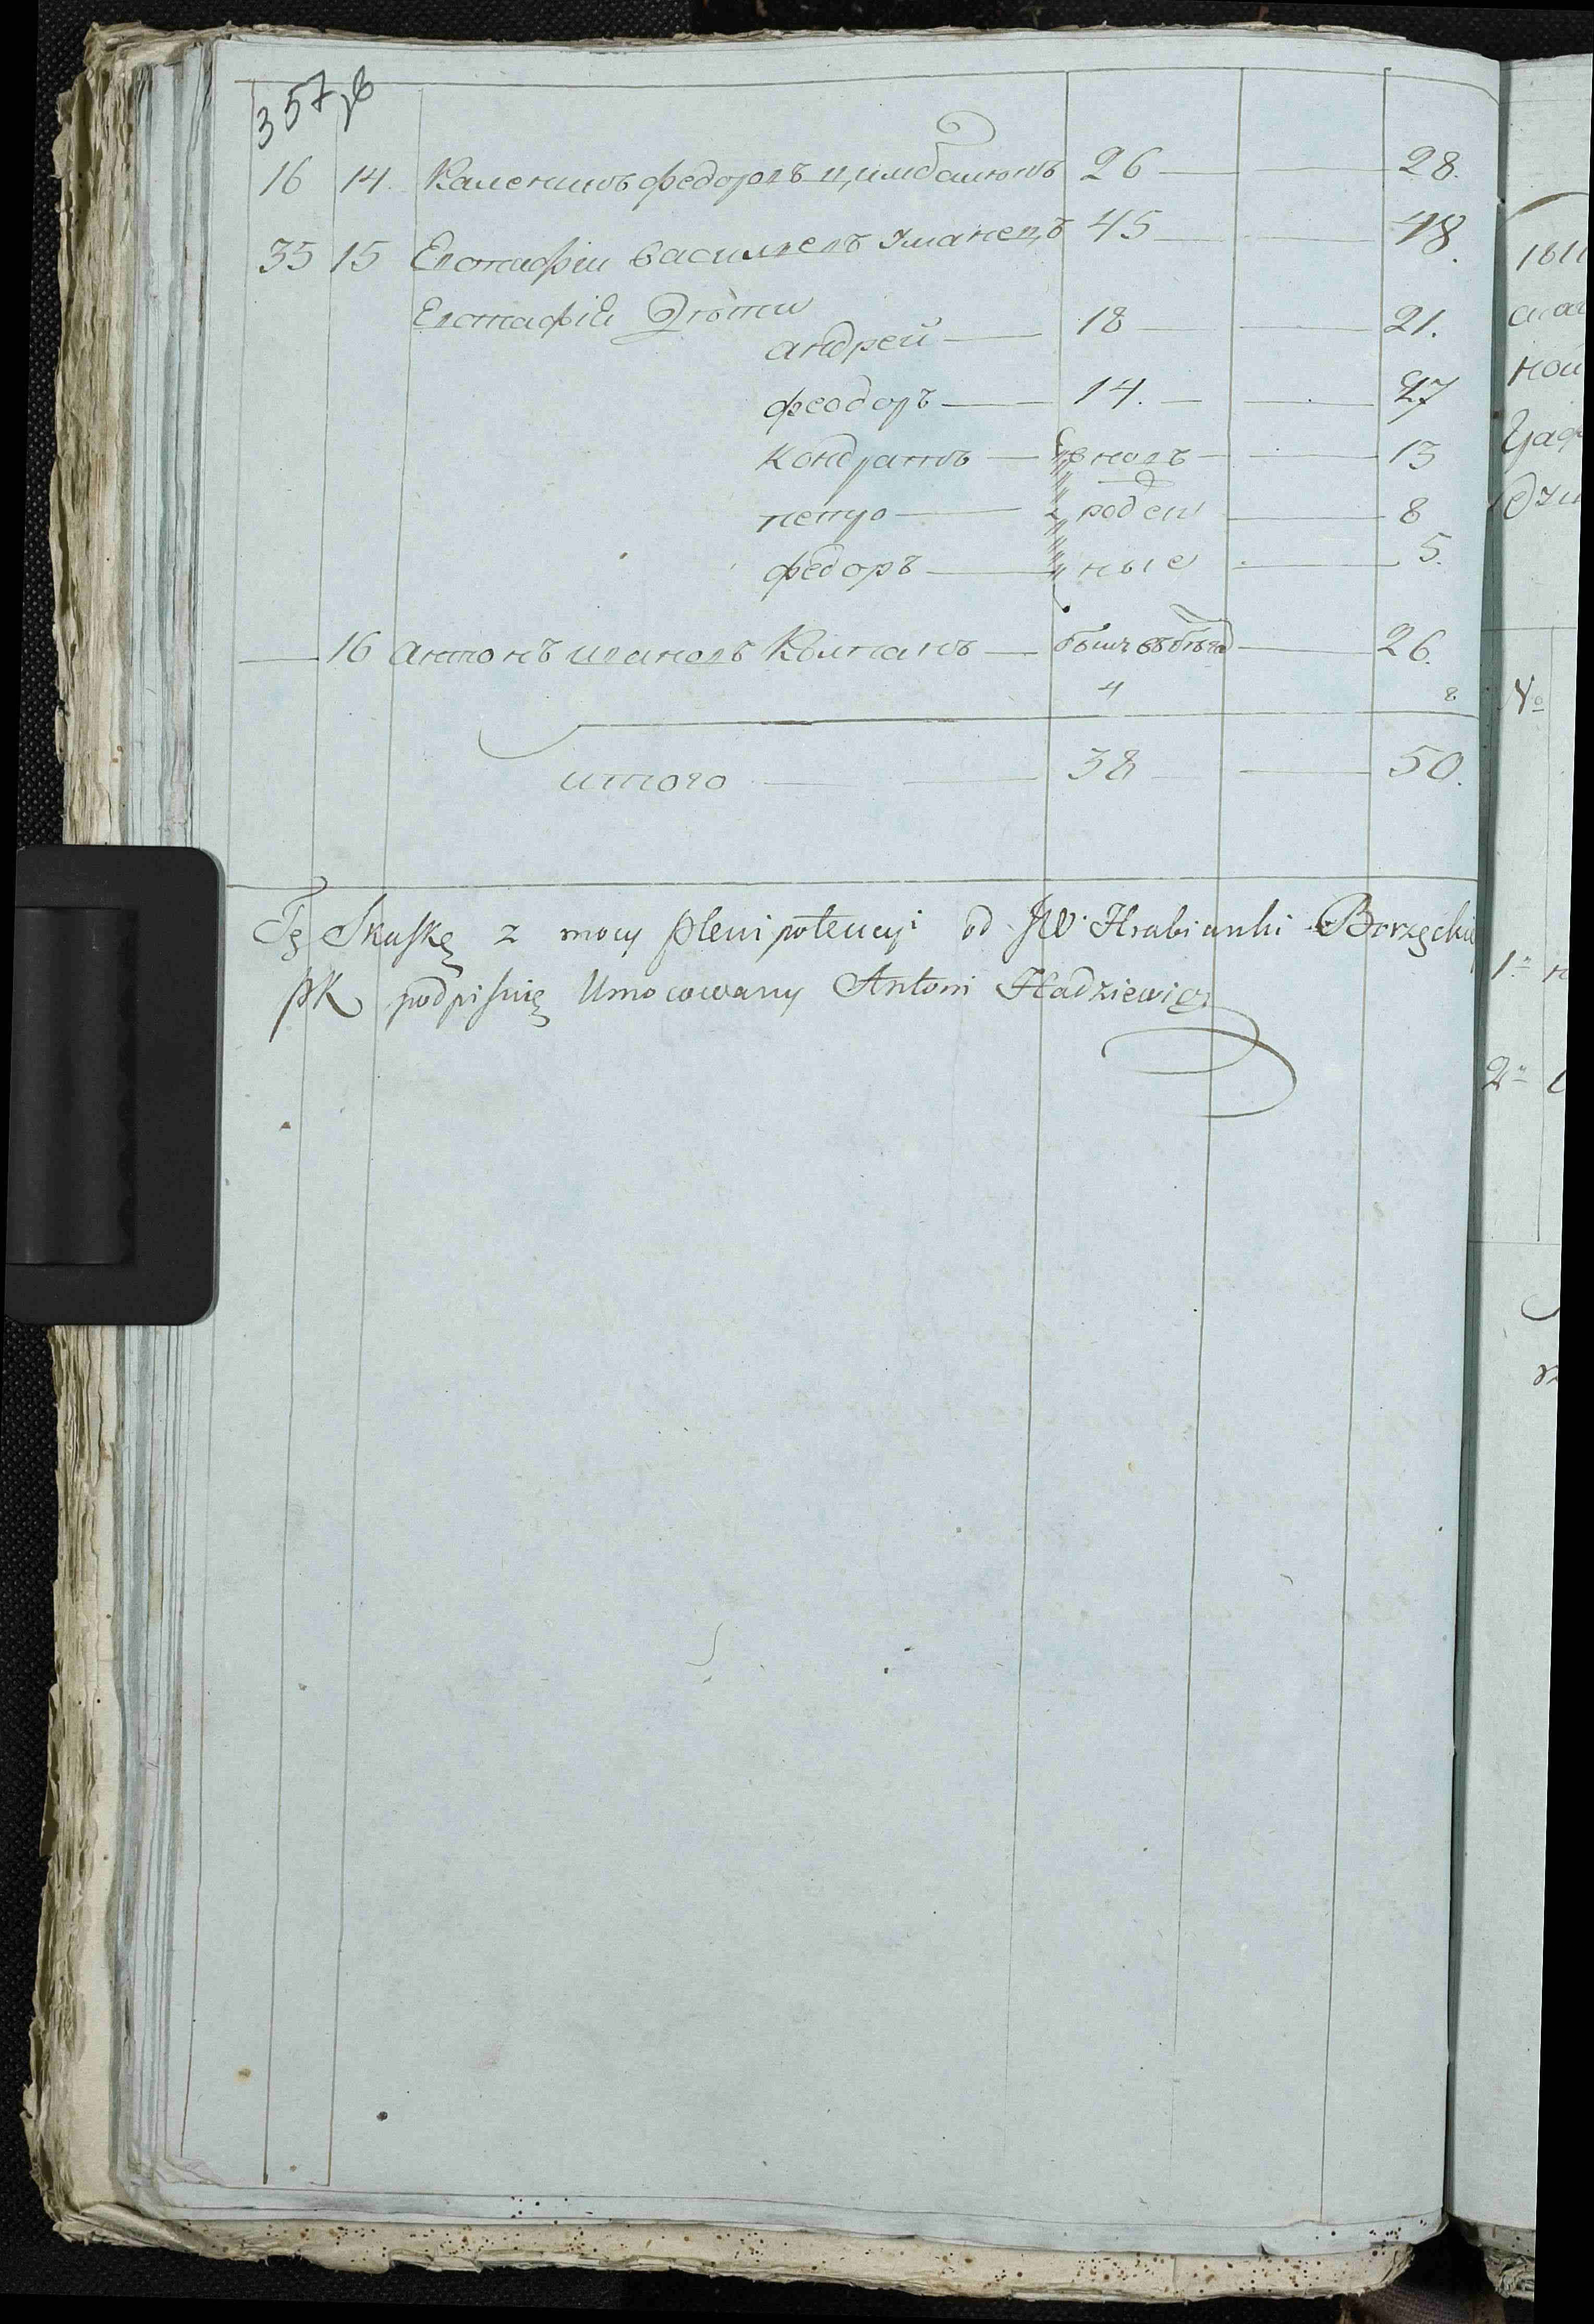 357
16 14. Каленикъ федоровъ Цимбалюкъ 26 — — 28.
35 15 Евстафій Василіевъ Уманецъ 45 — — 48.
Евстафія Дѣти
андрей — 18 — — 21.
феодоръ — 14. — — 17
Кондратъ — вновь — — 13
петро — рожден — 8
федоръ — ные — 5.
— 16 антонъ ивановъ Колтанъ — бывъ въ бѣга — 26.
4 8
итого — — 38 — — 50.
Tę Skaskę z mocy plenipotencyi od JW. Hrabianki Borzęckiey
PK podpisuię Umocowany Antoni Hadziewicz